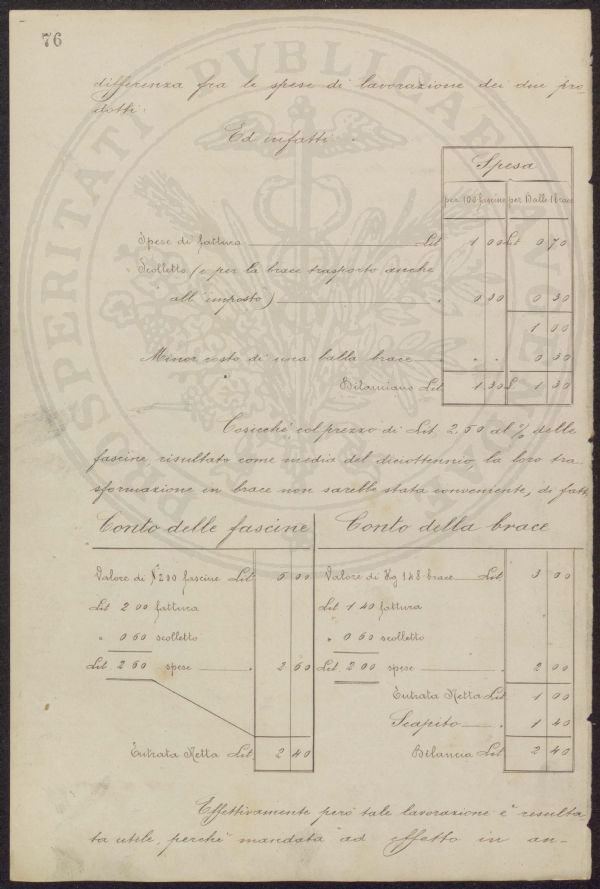 76
differenza fra le spese di lavorazione dei due pro-
dotti.
Ed infatti.
Spesa
per 100 fascine per Balle 1 brace
Spese di fattura Lit 1 00 Lit 0 70
Scolletto (e per la brace trasporto anche
all'imposto) " 0 30 0 30
1 00
Minor costo di una balla brace " " 0 30
Bilanciano Lit 1 30 £ 1 30
Cosicchè col prezzo di Lit. 2,50 al % delle
fascine, risultato come media del diciottennio, la loro tra-
sformazione in brace non sarebbe stata conveniente, di fatt.
Conto delle fascine
Valore di N° 200 fascine Lit 5 00
Lit 2 00 fattura
" 0 60 scolletto
Lit 2 60 spese " 2 60
Entrata Netta Lit 2 40
Conto della brace
Valore di Kg 148 brace Lit 3 00
Lit 1 40 fattura
" 0 60 scolletto
Lit 2 00 spese " 2 00
Entrata Netta Lit 1 00
Scapito " 1 40
Bilancia Lit 2 40
Effettivamente però tale lavorazione è resulta
ta utile, perchè mandata ad effetto in an-
PROSPERITATI PVBLICAE AVGENDAE